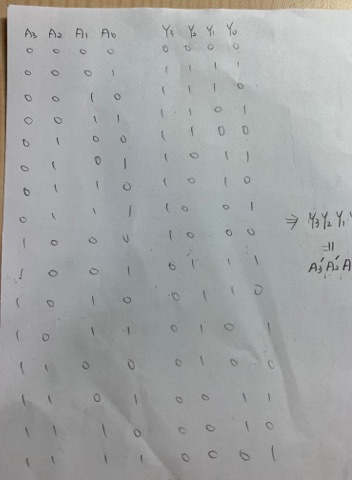 A3 A2 A1 A0 Y3 Y2 Y1 Y0
0 0 0 0 0 0 0 0
0 0 0 1 1 1 1 1
0 0 1 0 1 1 1 0
0 0 1 1 1 1 0 1
0 1 0 0 1 1 0 0
0 1 0 1 1 0 1 1
0 1 1 0 1 0 1 0
0 1 1 1 1 0 0 1
⇒ Y3 Y2 Y1
1 0 0 0 1 0 0 0
=
1 0 0 1 0 1 1 1
A3' A2' A
1 0 1 0 0 1 1 0
1 0 1 1 0 1 0 1
1 1 0 0 0 1 0 0
1 1 0 1 0 0 1 1
1 1 1 0 0 0 1 0
1 1 1 1 0 0 0 1